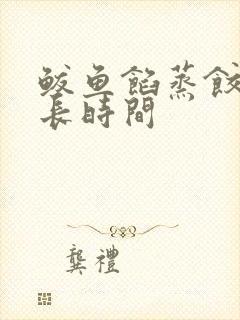 鲅鱼餡蒸餃
長時間
龔禮